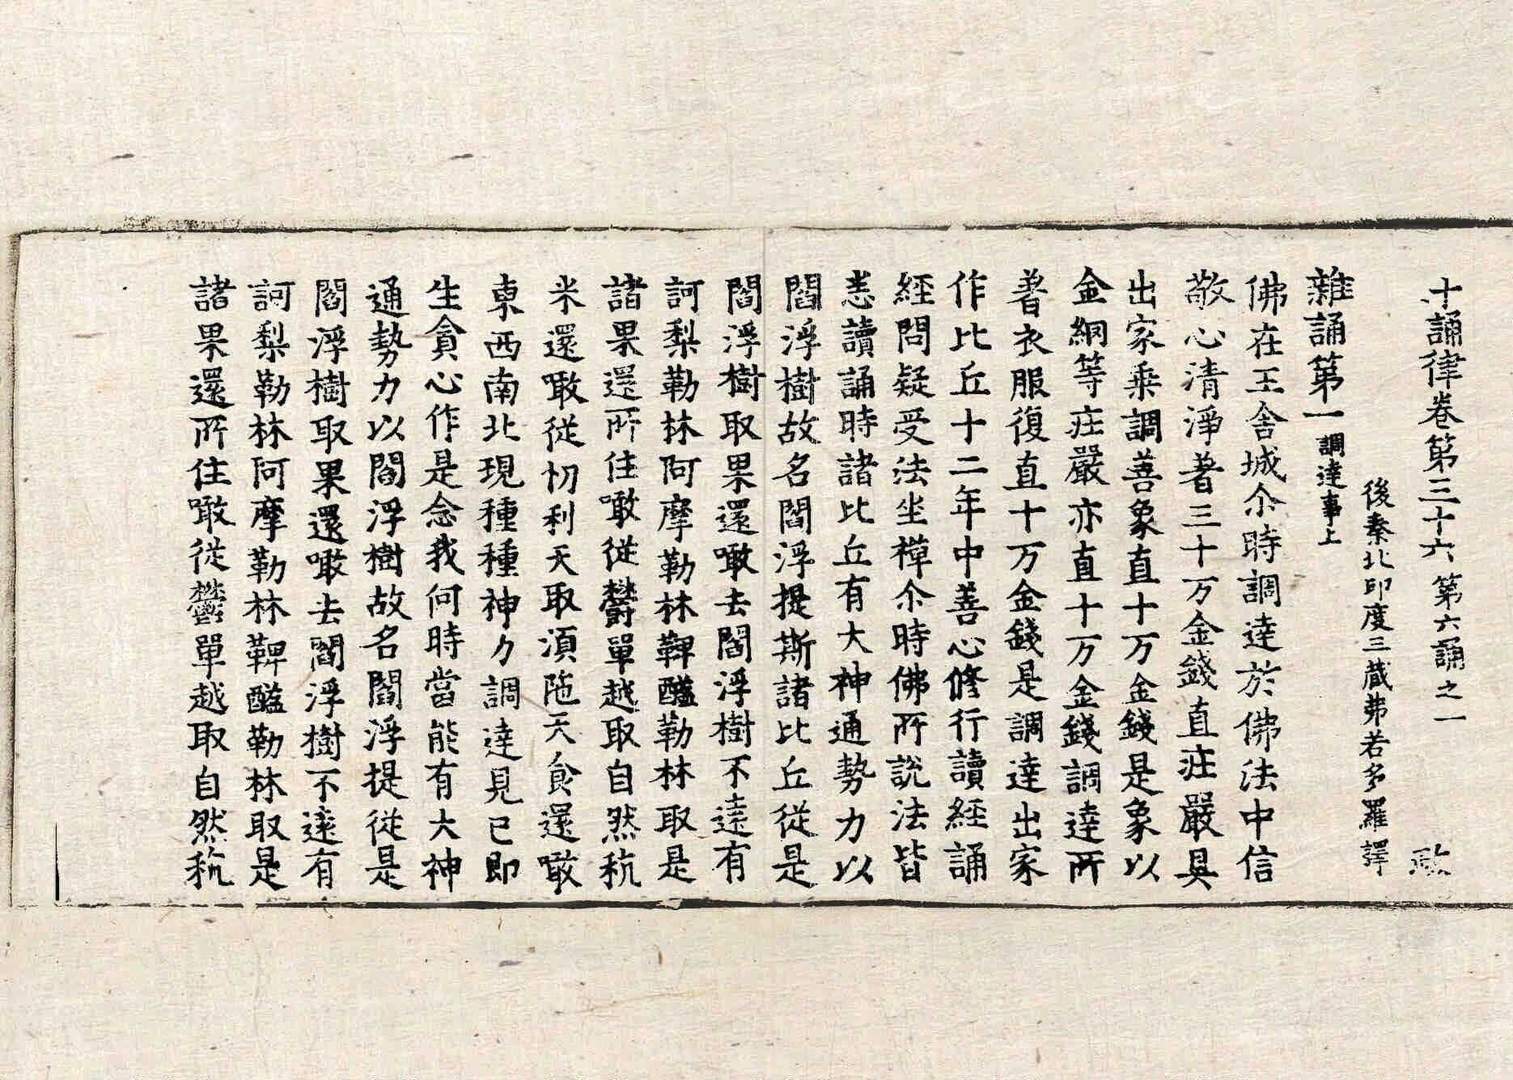 十誦律卷第三十六 第六誦之一
後秦北印度三藏弗若多羅譯
雜誦第一 調達事上
佛在王舍城尒時調達於佛法中信
敬心清淨著三十万金錢直㽵嚴具
出家乘調善象直十万金錢是象以
金網等㽵嚴亦直十万金錢調達所
著衣服復直十万金錢是調達出家
作比丘十二年中善心修行讀經誦
經問疑受法坐禪尒時佛所說法皆
悉讀誦時諸比丘有大神通勢力以
閻浮樹故名閻浮提斯諸比丘從是
閻浮樹取果還噉去閻浮樹不遠有
訶梨勒林阿摩勒林鞞醯勒林取是
諸果還所住噉從欝單越取自然秔
米還噉從忉利天取須陁天食還噉
東西南北現種種神力調達見已即
生貪心作是念我何時當能有大神
通勢力以閻浮樹故名閻浮提從是
閻浮樹取果還噉去閻浮樹不遠有
訶梨勒林阿摩勒林鞞醯勒林取是
諸果還所住噉從欝單越取自然秔